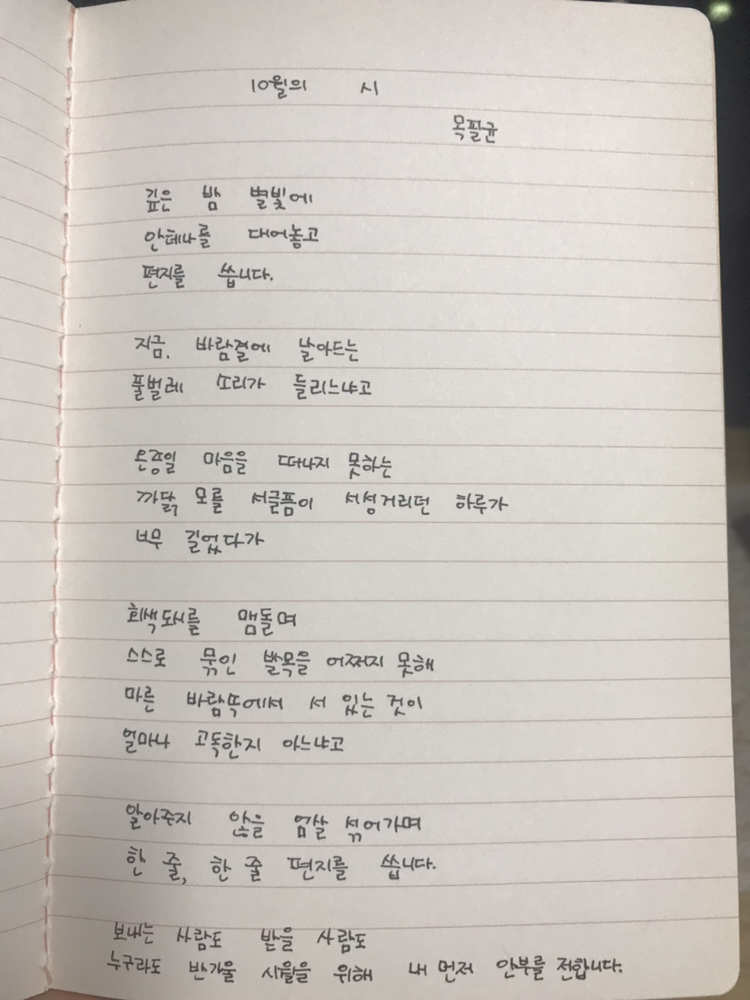 10월의 시
목필균
깊은 밤 별빛에
안테나를 대어놓고
편지를 씁니다.
지금, 바람결에 날아드는
풀벌레 소리가 들리느냐고
온종일 마음을 떠나지 못하는
까닭 모를 서글픔이 서성거리던 하루가
너무 길었다가
회색도시를 맴돌며
스스로 묶인 발목을 어쩌지 못해
마른 바람속에서 서 있는 것이
얼마나 고독한지 아느냐고
알아주지 않을 엄살 섞어가며
한 줄, 한 줄 편지를 씁니다.
보내는 사람도 받을 사람도
누구라도 반가울 시월을 위해 내 먼저 안부를 전합니다.